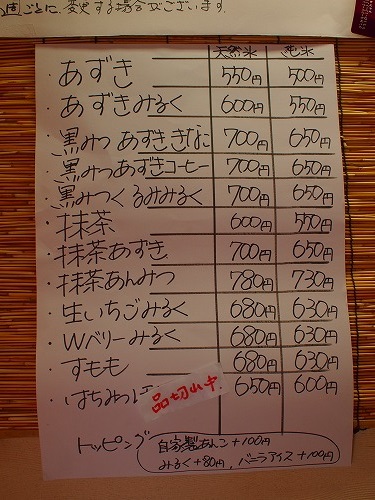 週ごとに変更する場合がございます.
天然氷 純氷
・あずき 550円 500円
・あずきみるく 600円 550円
・黒みつあずききなこ 700円 650円
・黒みつあずきコーヒー 700円 650円
・黒みつくるみみるく 700円 650円
・抹茶 600円 550円
・抹茶あずき 700円 650円
・抹茶あんみつ 780円 730円
・生いちごみるく 680円 630円
・Wベリーみるく 680円 630円
・すもも 680円 630円
・はちみつ 品切れ中 650円 600円
トッピング 自家製あんこ+100円
みるく+80円、バニラアイス+100円